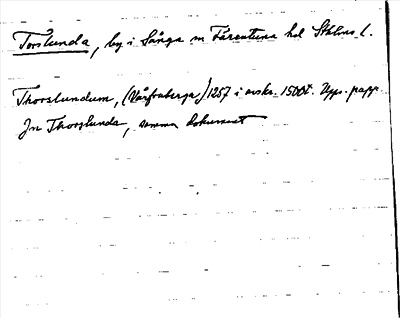 Torslunda, by i Sånga sn Färentuna hd Sthlms l.
Thorslundum, (Vårfruberga) 1257 i avskr. 1500t. Upps. papp.
In Thorslunda, samma dokument